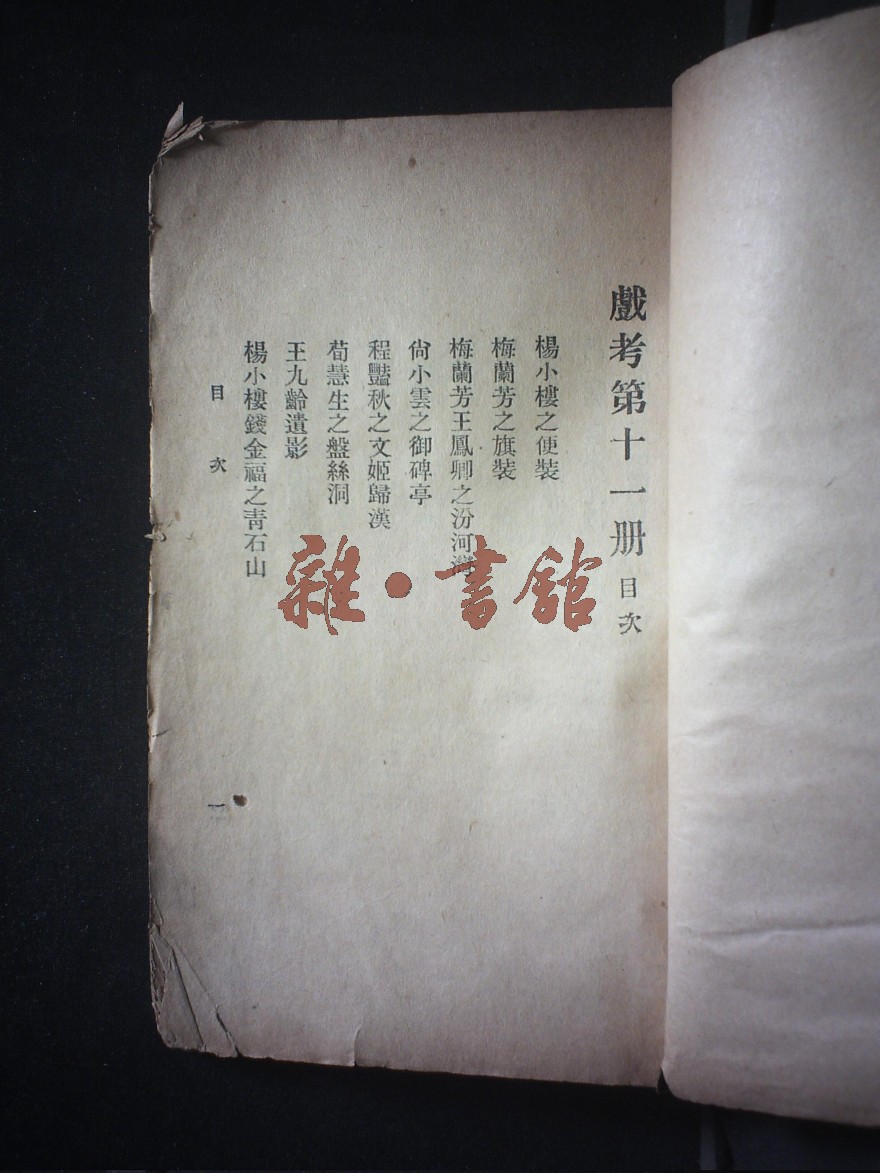 戲考第十一册 目次
楊小樓之便裝
梅蘭芳之旗裝
梅蘭芳王鳳卿之汾河灣
尙小雲之御碑亭
程豔秋之文姬歸漢
荀慧生之盤絲洞
王九齡遺影
楊小樓錢金福之靑石山
目次
一
雜·書館